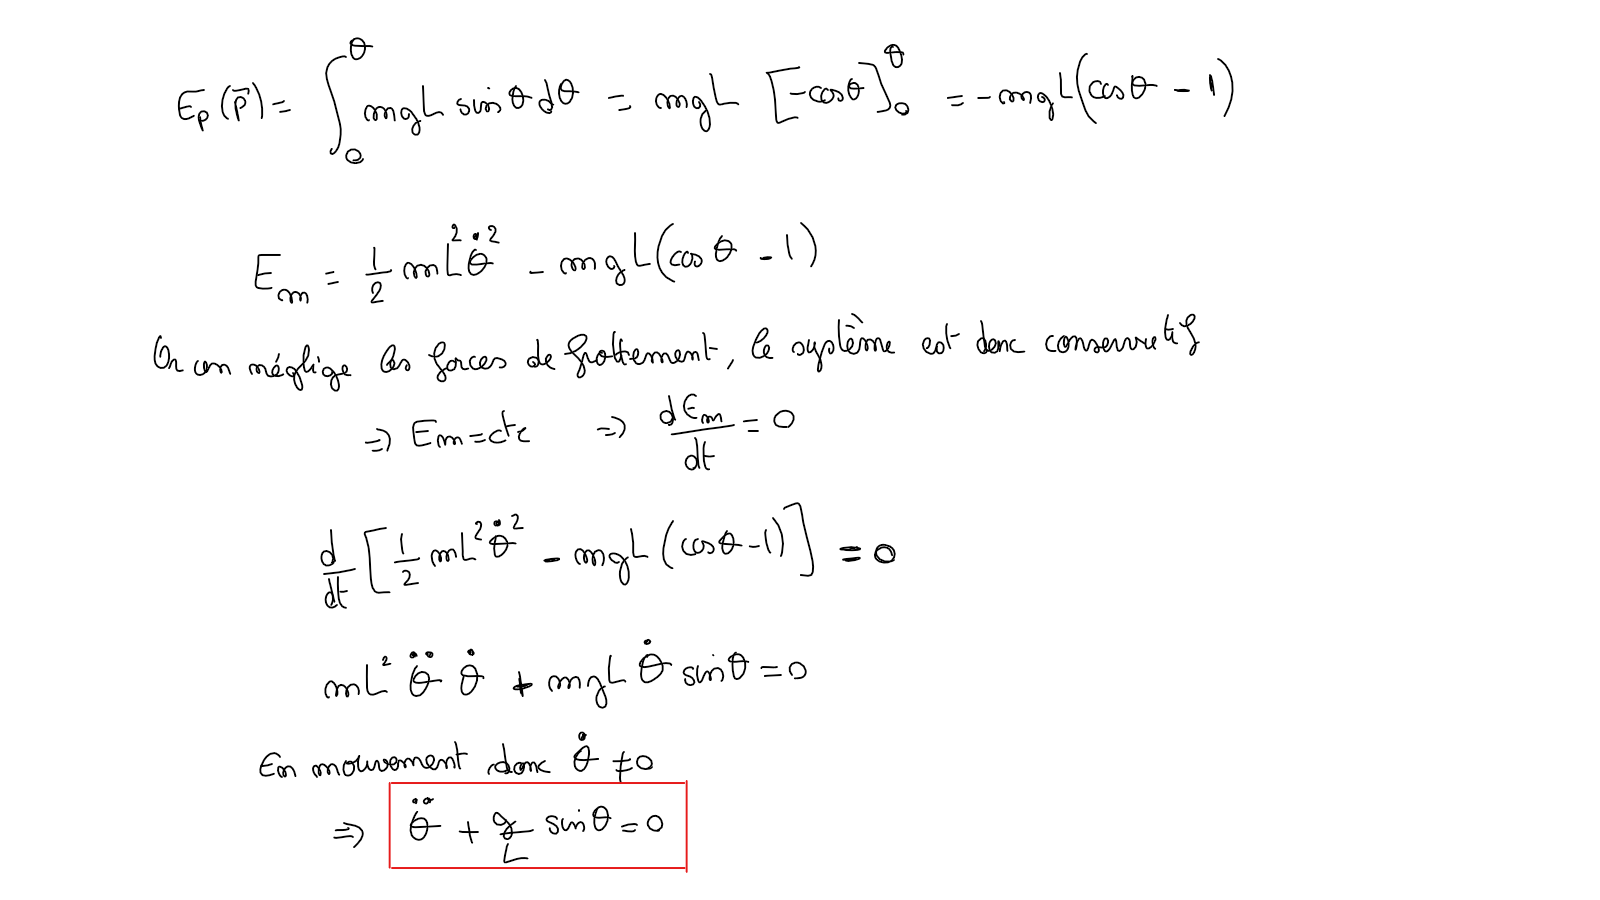 Ep(p⃗) = ∫₀^θ mgL sinθ dθ = mgL [-cosθ]₀^θ = -mgL(cosθ - 1)
Em = 1/2 mL² θ̇² - mgL(cosθ - 1)
Or on néglige les forces de frottement, le système est donc conservatif
=> Em = cte => dEm/dt = 0
d/dt [1/2 mL² θ̇² - mgL (cosθ - 1)] = 0
mL² θ̈ θ̇ + mgL θ̇ sinθ = 0
En mouvement donc θ̇ ≠ 0
=> θ̈ + g/L sinθ = 0